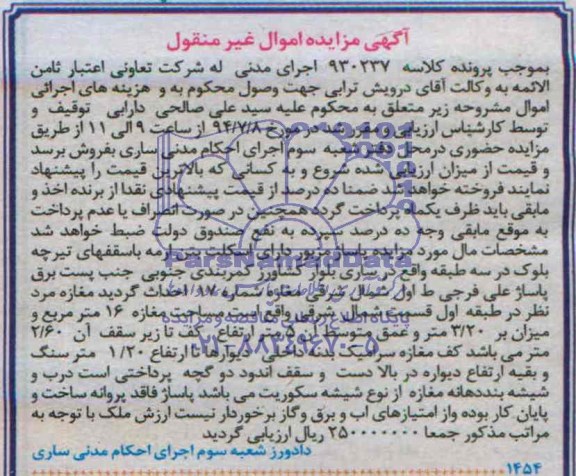 آگهی مزایده اموال غیر منقول
بموجب پرونده کلاسه ۹۳۰۲۳۷ اجرای مدنی له شرکت تعاونی اعتبار ثامن
الائمه به وکالت آقای درویش ترابی جهت وصول محکوم به و هزینه های اجرائی
اموال مشروحه زیر متعلق به محکوم علیه سید علی صالحی دارابی توقیف و
توسط کارشناس ارزیابی و مقرر شد در مورخ ۹۴/۷/۸ از ساعت ۹ الی ۱۱ از طریق
مزایده حضوری در محل دفتر شعبه سوم اجرای احکام مدنی ساری بفروش برسد
و قیمت از میزان ارزیابی شده شروع و به کسانی که بالاترین قیمت را پیشنهاد
نمایند فروخته خواهد شد ضمنا ده درصد از قیمت پیشنهادی نقدا از برنده اخذ و
مابقی باید ظرف یکماه پرداخت گردد همچنین در صورت انصراف یا عدم پرداخت
به موقع مابقی وجه ده درصد سپرده به نفع صندوق دولت ضبط خواهد شد
مشخصات مال مورد مزایده پاساژ مزبور دارای اسکلت باسقفهای تیرچه
بلوک در سه طبقه واقع در ساری بلوار کشاورز کمربندی جنوبی جنب پست برق
پاساژ علی فرجی ط اول شمال شرقی مغازه شماره ۹۷ احداث گردید مغازه مرد
نظر در طبقه اول قسمت شمال شرقی واقع مساحت مغازه ۱۶ متر مربع و
میزان بر ۳/۲۰ متر و عمق متوسط آن ۵ متر ارتفاع کف تا زیر سقف آن ۲/۶۰
متر می باشد کف مغازه سرامیک بدنه داخلی دیوارها تا ارتفاع ۱/۲۰ متر سنگ
و بقیه ارتفاع دیواره در بالا دست و سقف اندود دو گچه پرداختی است درب و
شیشه بنددهانه مغازه از نوع شیشه سکوریت می باشد پاساژ فاقد پروانه ساخت و
پایان کار بوده واز امتیازهای اب و برق وگاز برخوردار نیست ارزش ملک با توجه به
مراتب مذکور جمعا ۲۵۰۰۰۰۰۰۰ ریال ارزیابی گردید
دادورز شعبه سوم اجرای احکام مدنی ساری
۱۴۵۴
ParsNamadData
پایگاه اطلاع رسانی مناقصه و مزایده
۰۲۱-۸۸۳۴۹۶۷۰-۵